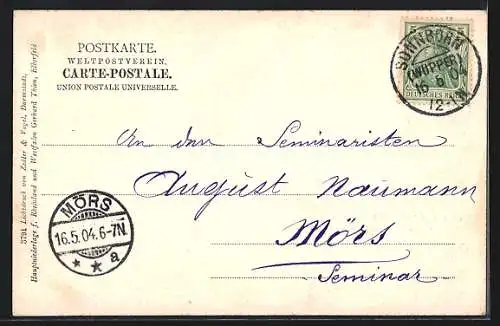 POSTKARTE.
WELTPOSTVEREIN.
CARTE-POSTALE.
UNION POSTALE UNIVERSELLE.
SONNBORN
(WUPPER)
16 5 04
12-
DEUTSCHES REICH
An den Seminaristen
August Naumann
Mörs
Seminar
MÖRS
16.5.04.6-7N.
* * a
3791 Lichtdruck von Zedler & Vogel, Darmstadt,
Hauptniederlage f. Rheinland und Westfalen Gerhard Thien, Elberfeld